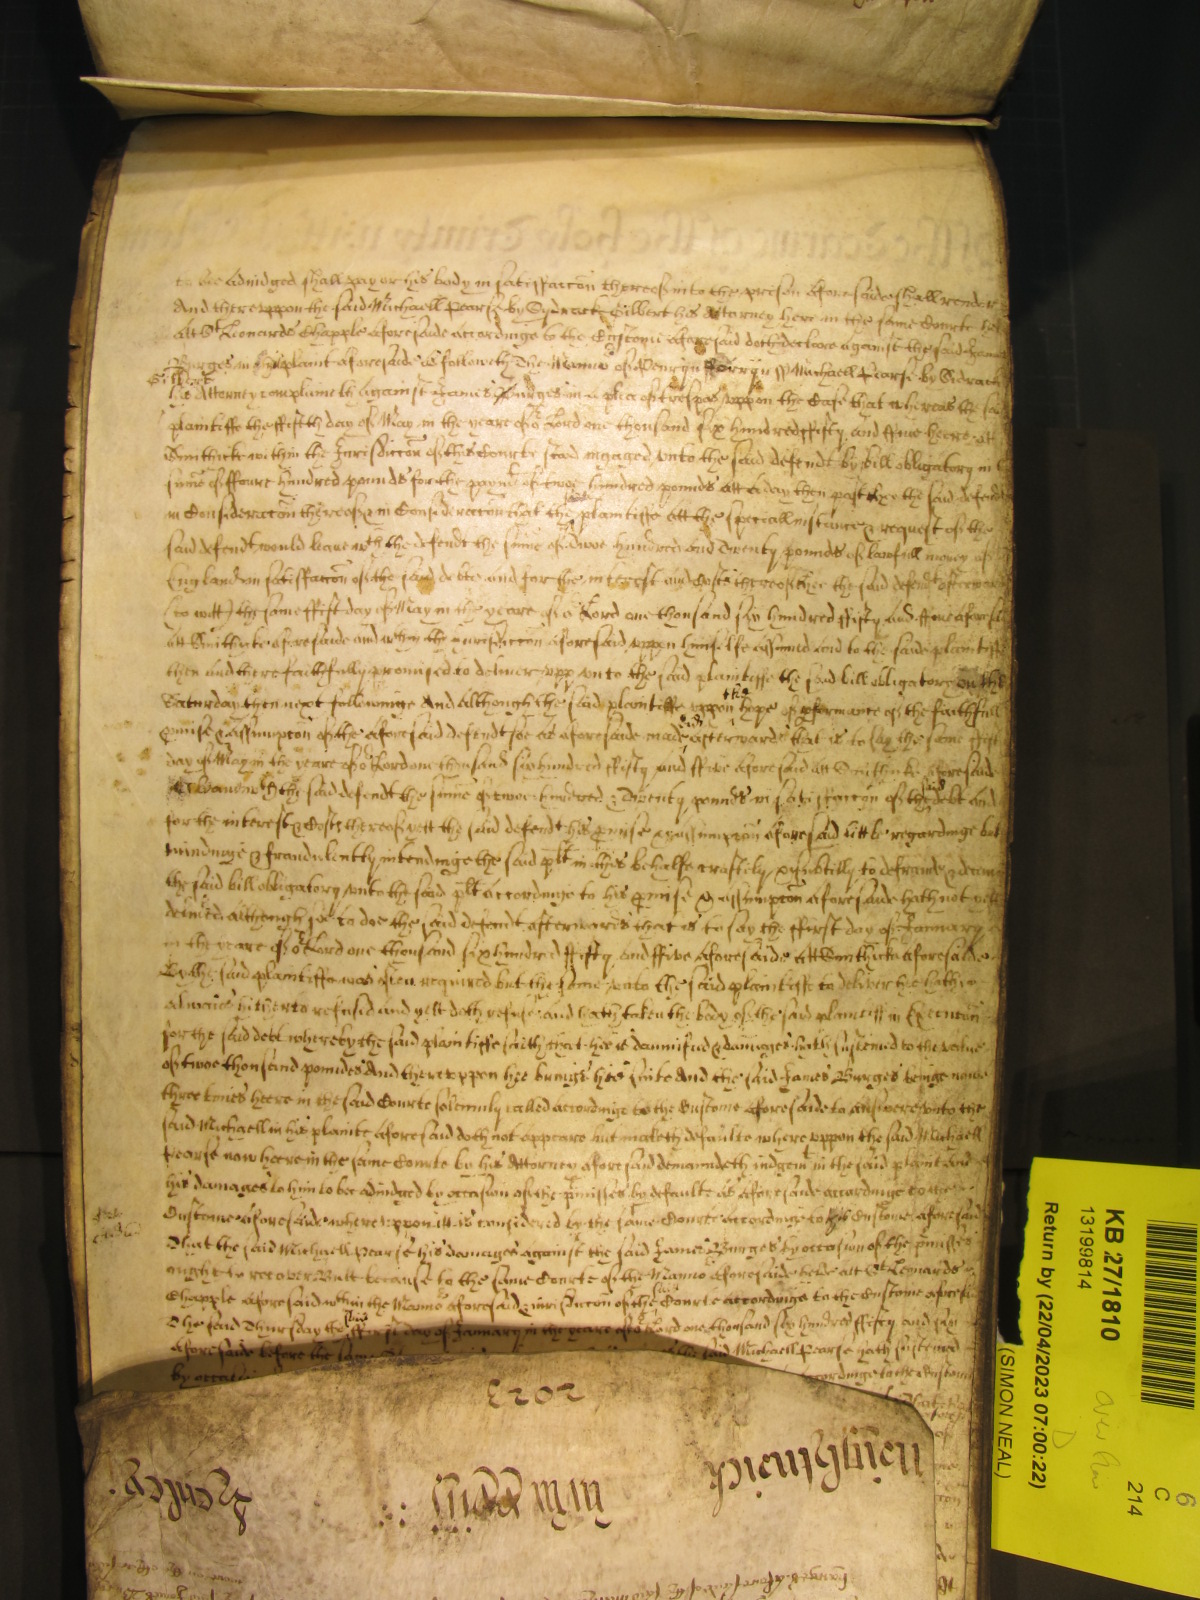 to bee adiudged shall pay or his body in satisfaccon thereof into the prison aforesaide shall render
And thereuppon the said Michaell Pearse by Sydrach Gilbert his Attorney here in the same Courte
att St Leonards Chapple aforesaide accordinge to the Custome aforesaid doth declare against the said James
Burges in his plaint aforesaide as followeth The Mannor of Penryn fforryn ss Michaell Pearse by Sidrach
Gilbert
his Attorney complaineth against James Burges in a plea of trespas uppon the Case that whereas the said
plaintiffe the ffifth day of May in the yeare of or Lord one thousand six hundred ffifty and ffive heere att
Smithicke within the Jurisdiccon of this Courte stood ingaged unto the said defendt by bill obligatory in the
sume of ffoure hundred pounds for the paymt of twoe hundred pounds att a day then past hee the said defendt
in Consideracon thereof & in Consideracon that the said plaintiffe att the speciall instance & request of the
said defendt would leave wth the defendt the sume of Twoe hundred and Twenty pounds of lawfull money of
England in satisfaccon of the said debte and for the interest and Costs thereof hee the said defendt afterwards
(to witt) the same ffift day of May in the yeare of or Lord one thousand six hundred ffifty and ffive aforesaid
att Smithicke aforesaide and within the jurisdiccon aforesaid uppon himselfe assumed and to the saide plaintiffe
then and there faithfully promised to deliver upp unto the said plaintiffe the said bill obligatory on the
Saturday then next followinge And although the said plaintiffe uppon the hope of pformance of the faithfull
pmise & assumpcon of the aforesaid defendt soe as aforesaide made afterwards that is to say the same ffift
day of May in the yeare of or Lord one thousand six hundred ffifty and ffive aforesaid att Smithicke aforesaide
did leave wth the said defendt the sume of twoe hundred & Twenty pounds in satisfaccon of the said debt and
for the interest & Costs thereof yett the said defendt his pmise & assumpcon aforesaid little regardinge but
mindinge & fraudulently intendinge the said plt in this behalfe craftily & subtilly to defraude & deceive
the said bill obligatory unto the said plt accordinge to his pmise & assumpcon aforesaide hath not yett
delived although soe to doe the said defendt afterwards that is to say the ffirst day of January
in the yeare of or Lord one thousand six hundred ffifty and ffive aforesaide att Smithicke aforesaide
by the said plaintiffe was often required but the same unto the said plaintiffe to deliver hee hath
alwaies hitherto refused and yett doth refuse and hath taken the body of the said plaintiff in Execucon
for the said debt whereby the said plaintiffe saith that hee is damnified & damages hath sustened to the value
of twoe thousand pounds And thereuppon hee brings his suite And the said James Burges beinge nowe
three times heere in the said Courte solemnly called accordinge to the Custome aforesaide to answere unto the
said Michaell in his plainte aforesaid doth not appeare but maketh defaulte whereuppon the said Michaell
Pearse now heere in the same Courte by his Attorney aforesaid demaundeth iudgemt in the said plaint and
his damages to him to be adiudged by occasion of the pmisses by defaulte as aforesaide accordinge to the
Custome aforesaide whereuppon itt is considered by the same Courte accordinge to the Custome aforesaid
That the said Michaell Pearse his damages against the said James Burges by occasion of the pmisses
ought to recover Butt because to the same Courte of the Mannor aforesaide helde att St Leonards
Chapple aforesaid within the Mannor aforesaid & jurisdiccon of the said Courte accordinge to the Custome aforesaid
The said Thursday the said ffirst day of January in the yeare of or Lord one thousand six hundred ffifty and six
aforesaide before the same
said Michaell Pearse hath sustened
by occasion
accordinge to the Custome
KB 27/1810
13199814
Return by (22/04/2023 07:00:22)
(SIMON NEAL)
6
C
214
D